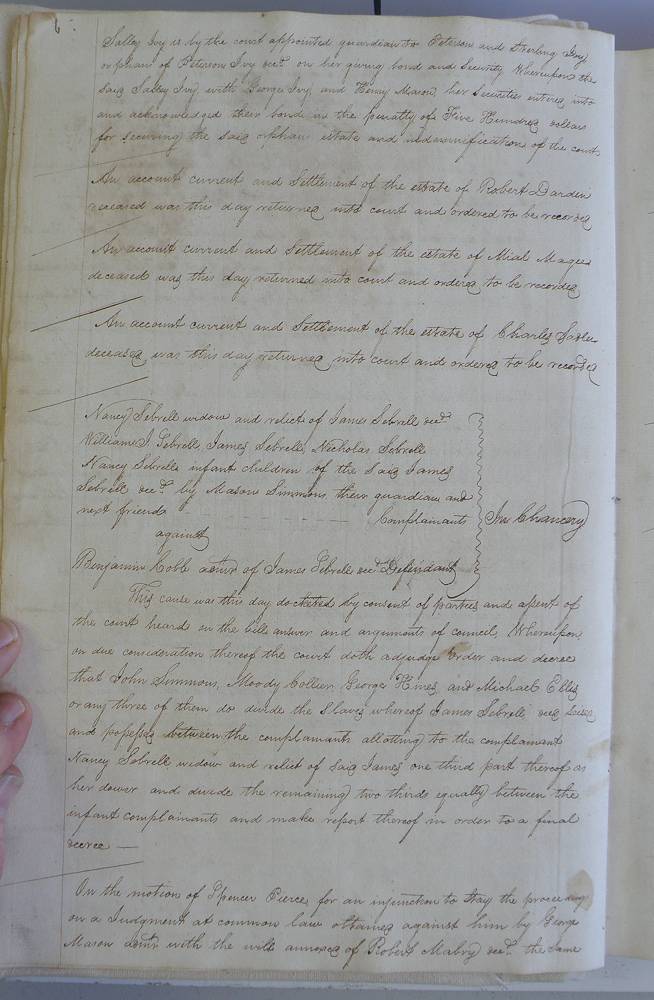 6
Salley Ivy is by the court appointed guardian to Peterson and Sterling Ivy
orphans of Peterson Ivy decd. on her giving bond and Security Whereupon the
said Salley Ivy with George Ivy and Henry Mason her Securities entered into
and acknowledged their bond in the penalty of Five Hundred dollars
for securing the said orphans estate and indemnification of the court
An account current and Settlement of the estate of Robert Darden
deceased was this day returned into court and ordered to be recorded
An account current and Settlement of the estate of Micah Magee
deceased was this day returned into court and ordered to be recorded
An account current and Settlement of the estate of Charles
deceased was this day returned into court and ordered to be recorded
Nancy Sebrell widow and relict of James Sebrell decd.
William J Sebrell, James Sebrell, Nicholas Sebrell
Nancy Sebrell infant children of the Said James
Sebrell decd. by Mason Simmons their guardian and
next friend Complainants
In Chancery
against
Benjamin Cobb admr of James Sebrell decd. Defendant
This cause was this day docketed by consent of parties and assent of
the court heard on the bill answer and arguments of council, Whereupon
on due consideration thereof the court doth adjudge order and decree
that John Simmons, Moody Collier, George Hines, and Michael Ellis
or any three of them do divide the Slaves whereof James Sebrell died seised
and possessed between the complainants allotting to the complainant
Nancy Sebrell widow and relict of said James one third part thereof as
her dower and divide the remaining two thirds equally between the
infant complainants and make report thereof in order to a final
decree —
On the motion of Spencer Pierce for an injunction to stay the proceedings
on a Judgment at common law obtained against him by George
Mason admr with the will annexed of Robert Mabry decd. the same